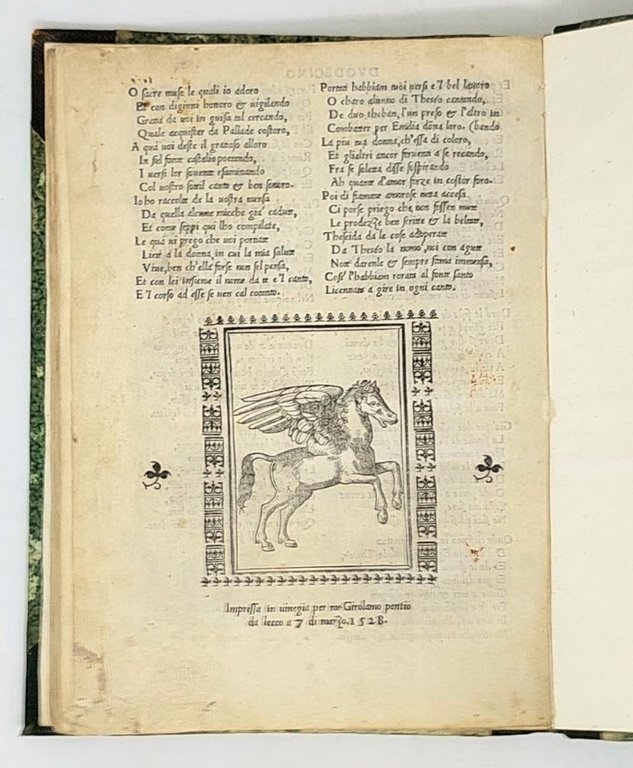 O sacre muse le quali io adoro
Et con digiuni honoro & vigilando
Gratia da voi in guisa tal cercando,
Quale acquistar da Pallade costoro,
A qui voi deste il gratioso alloro
In sul fonte castalio poetando,
I versi lor sovente esaminando
Col vostro sottil canto & ben sonoro.
Io ho raccolte de la vostra mensa
Da quella alcune micche gia cadute,
Et come seppi qui lho compilate,
Le qua vi prego che voi portate
Liete a la donna, in cui la mia salute
Vive, ben ch'ella forse non sel pensa,
Et con lei insieme il nome date e'l canto,
E'l corso ad esse se ven cal cotanto.
Portati habbiam tuoi versi e'l bel lavoro
O charo alunno di Theseo cantando,
De duo theban, l'un preso & l'altro in
(bando
Combatter per Emilia dõna loro.
La piu tua donna, ch'essa di coloro,
Et gli altri ancor se recando,
Fra se soletta disse sospirando
Ah quante d'amor forze in costor foro.
Poi di fiamme amorose tutta accesa
Ci porse priego che non fossen mute
Le prodezze ben scritte & la beltate,
Theseida da le cose adoperate
Da Theseo la nomò, noi con agute
Note darenle & sempre fama immensa,
Cosi l'habbiam rorata al fonte santo
Licentiata a gire in ogni canto.
Impressa in vinegia per mr Girolamo pentio
da lecco a 7 di marzo. 1528.